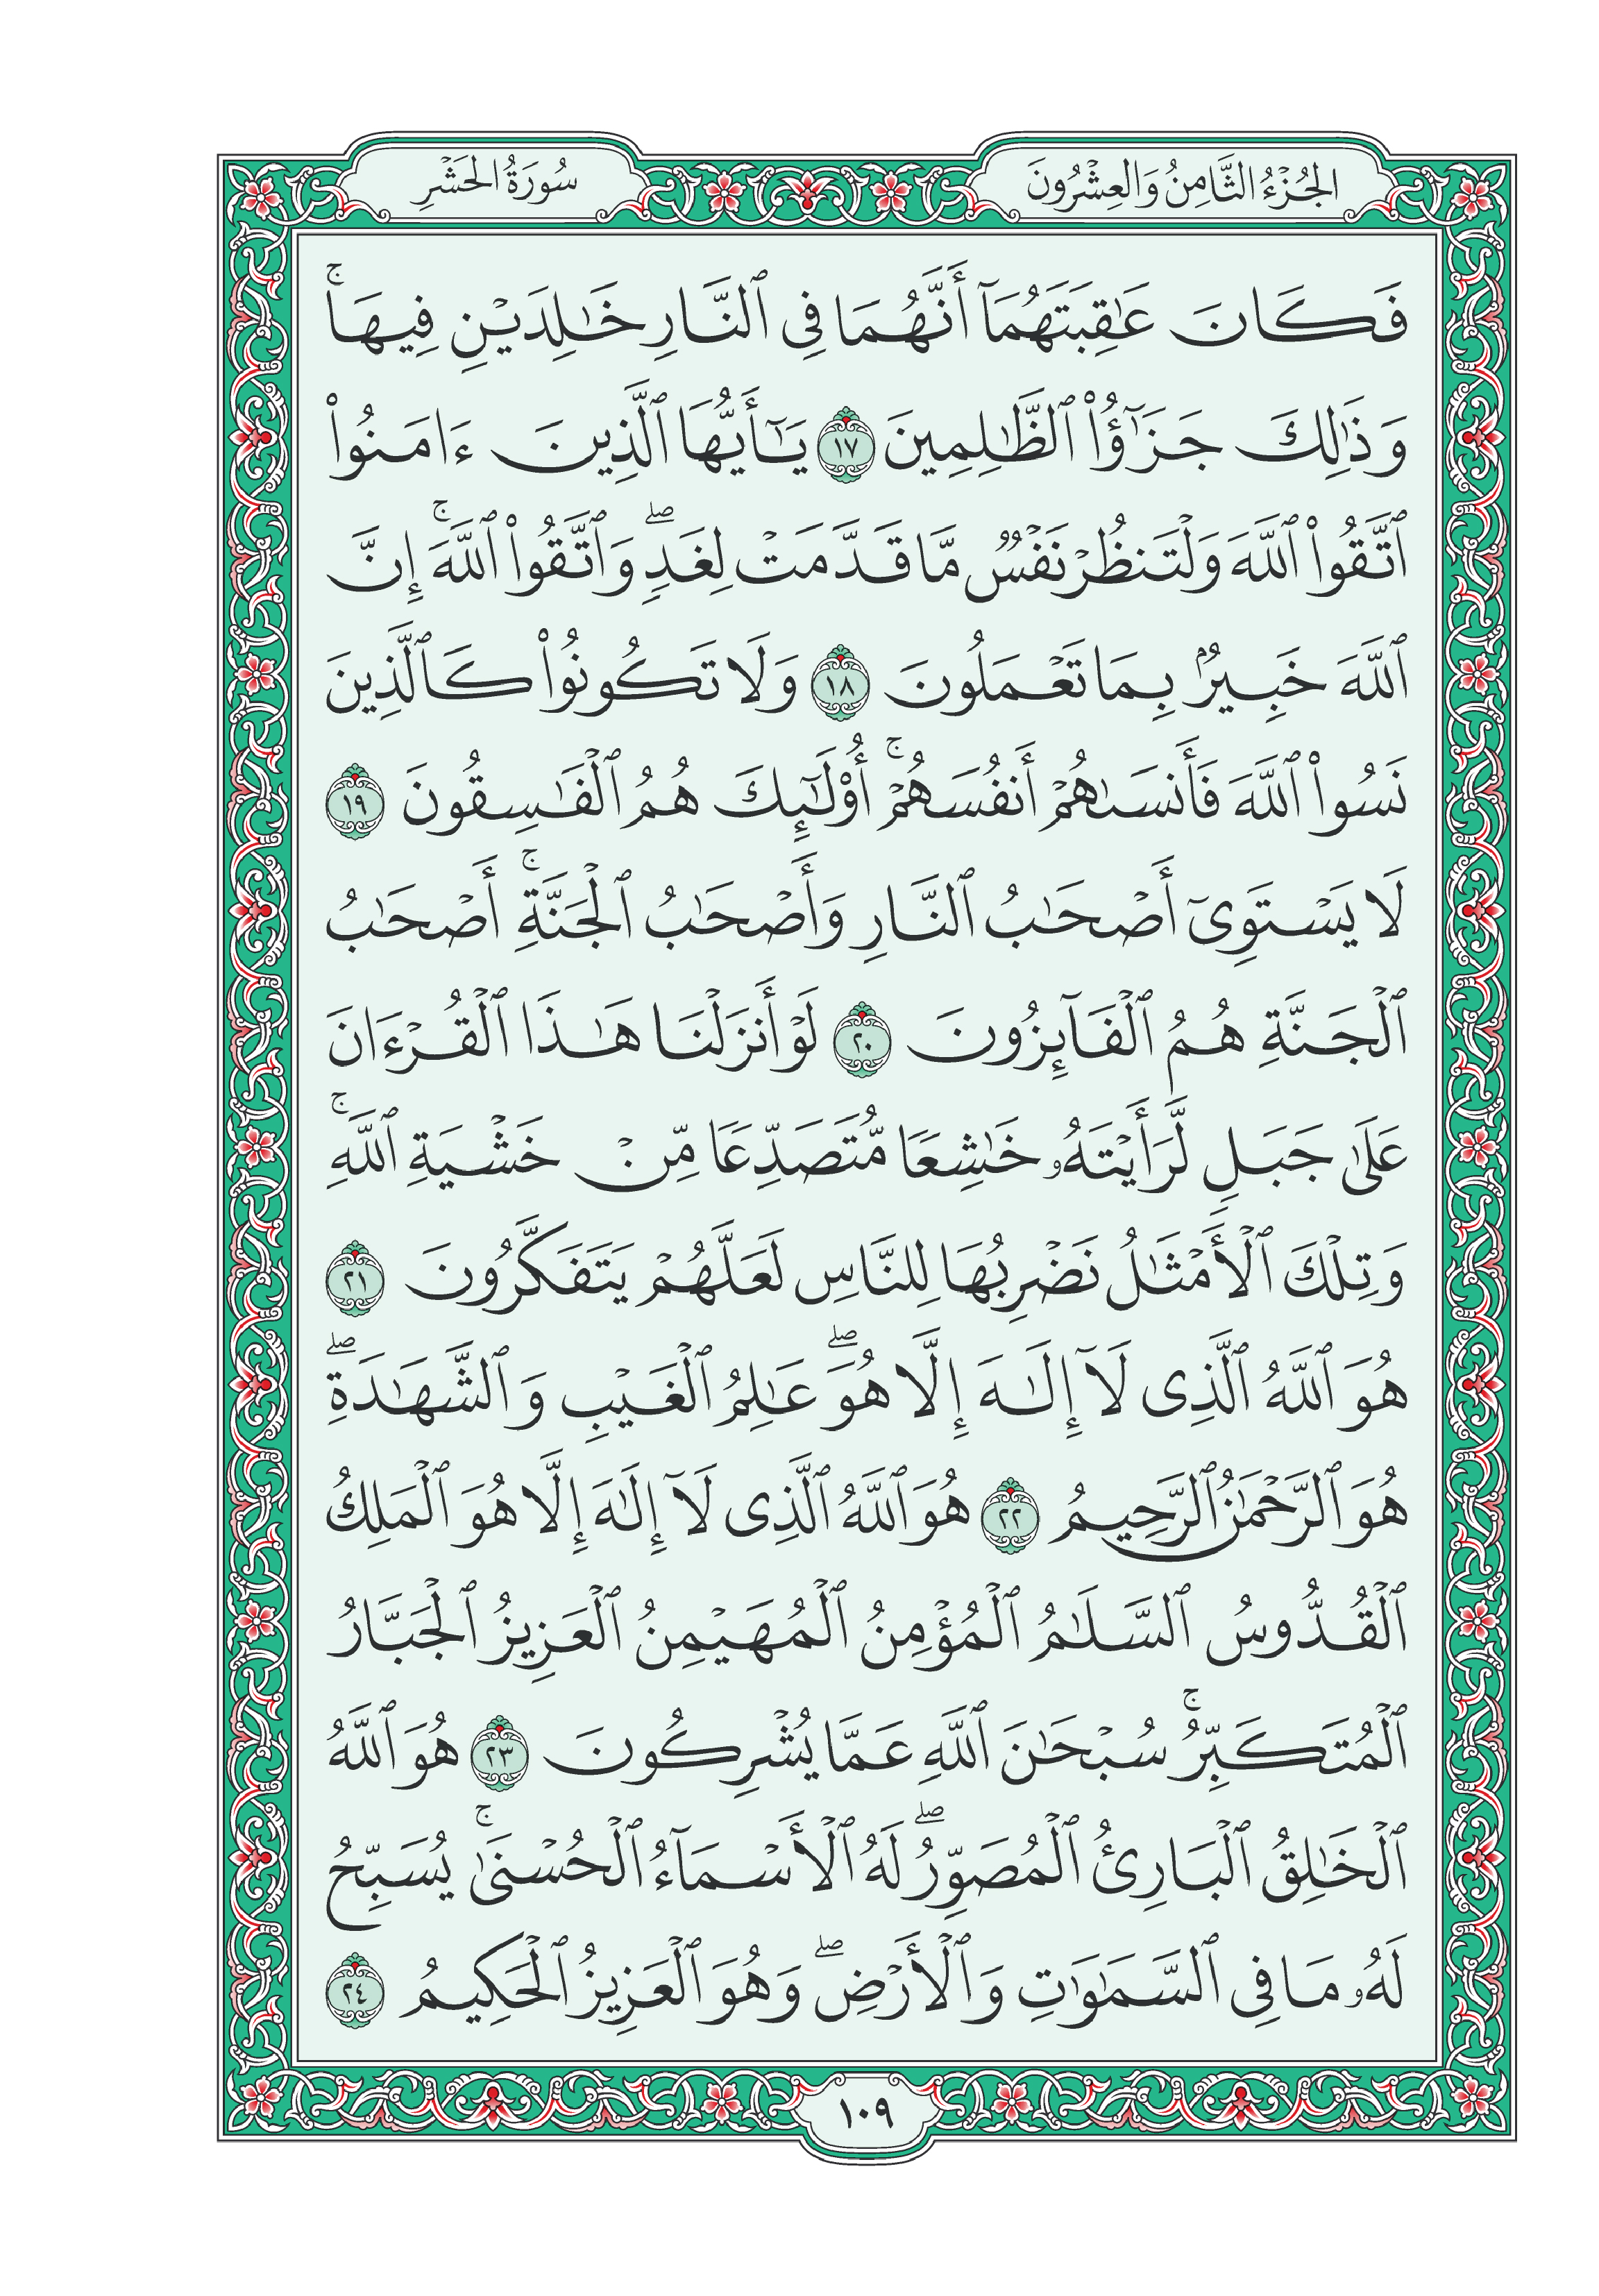 الجُزْءُ الثَّامِنُ وَالعِشْرُونَ
سُورَةُ الحَشْرِ
فَكَانَ عَٰقِبَتَهُمَآ أَنَّهُمَا فِى ٱلنَّارِ خَٰلِدَيْنِ فِيهَا ۚ
وَذَٰلِكَ جَزَٰٓؤُا۟ ٱلظَّٰلِمِينَ ١٧ يَٰٓأَيُّهَا ٱلَّذِينَ ءَامَنُوا۟
ٱتَّقُوا۟ ٱللَّهَ وَلْتَنظُرْ نَفْسٌ مَّا قَدَّمَتْ لِغَدٍ ۖ وَٱتَّقُوا۟ ٱللَّهَ ۚ إِنَّ
ٱللَّهَ خَبِيرٌۢ بِمَا تَعْمَلُونَ ١٨ وَلَا تَكُونُوا۟ كَٱلَّذِينَ
نَسُوا۟ ٱللَّهَ فَأَنسَىٰهُمْ أَنفُسَهُمْ ۚ أُو۟لَٰٓئِكَ هُمُ ٱلْفَٰسِقُونَ ١٩
لَا يَسْتَوِىٓ أَصْحَٰبُ ٱلنَّارِ وَأَصْحَٰبُ ٱلْجَنَّةِ ۚ أَصْحَٰبُ
ٱلْجَنَّةِ هُمُ ٱلْفَآئِزُونَ ٢٠ لَوْ أَنزَلْنَا هَٰذَا ٱلْقُرْءَانَ
عَلَىٰ جَبَلٍ لَّرَأَيْتَهُۥ خَٰشِعًا مُّتَصَدِّعًا مِّنْ خَشْيَةِ ٱللَّهِ ۚ
وَتِلْكَ ٱلْأَمْثَٰلُ نَضْرِبُهَا لِلنَّاسِ لَعَلَّهُمْ يَتَفَكَّرُونَ ٢١
هُوَ ٱللَّهُ ٱلَّذِى لَآ إِلَٰهَ إِلَّا هُوَ ۖ عَٰلِمُ ٱلْغَيْبِ وَٱلشَّهَٰدَةِ ۖ
هُوَ ٱلرَّحْمَٰنُ ٱلرَّحِيمُ ٢٢ هُوَ ٱللَّهُ ٱلَّذِى لَآ إِلَٰهَ إِلَّا هُوَ ٱلْمَلِكُ
ٱلْقُدُّوسُ ٱلسَّلَٰمُ ٱلْمُؤْمِنُ ٱلْمُهَيْمِنُ ٱلْعَزِيزُ ٱلْجَبَّارُ
ٱلْمُتَكَبِّرُ ۚ سُبْحَٰنَ ٱللَّهِ عَمَّا يُشْرِكُونَ ٢٣ هُوَ ٱللَّهُ
ٱلْخَٰلِقُ ٱلْبَارِئُ ٱلْمُصَوِّرُ ۖ لَهُ ٱلْأَسْمَآءُ ٱلْحُسْنَىٰ ۚ يُسَبِّحُ
لَهُۥ مَا فِى ٱلسَّمَٰوَٰتِ وَٱلْأَرْضِ ۖ وَهُوَ ٱلْعَزِيزُ ٱلْحَكِيمُ ٢٤
١٠٩